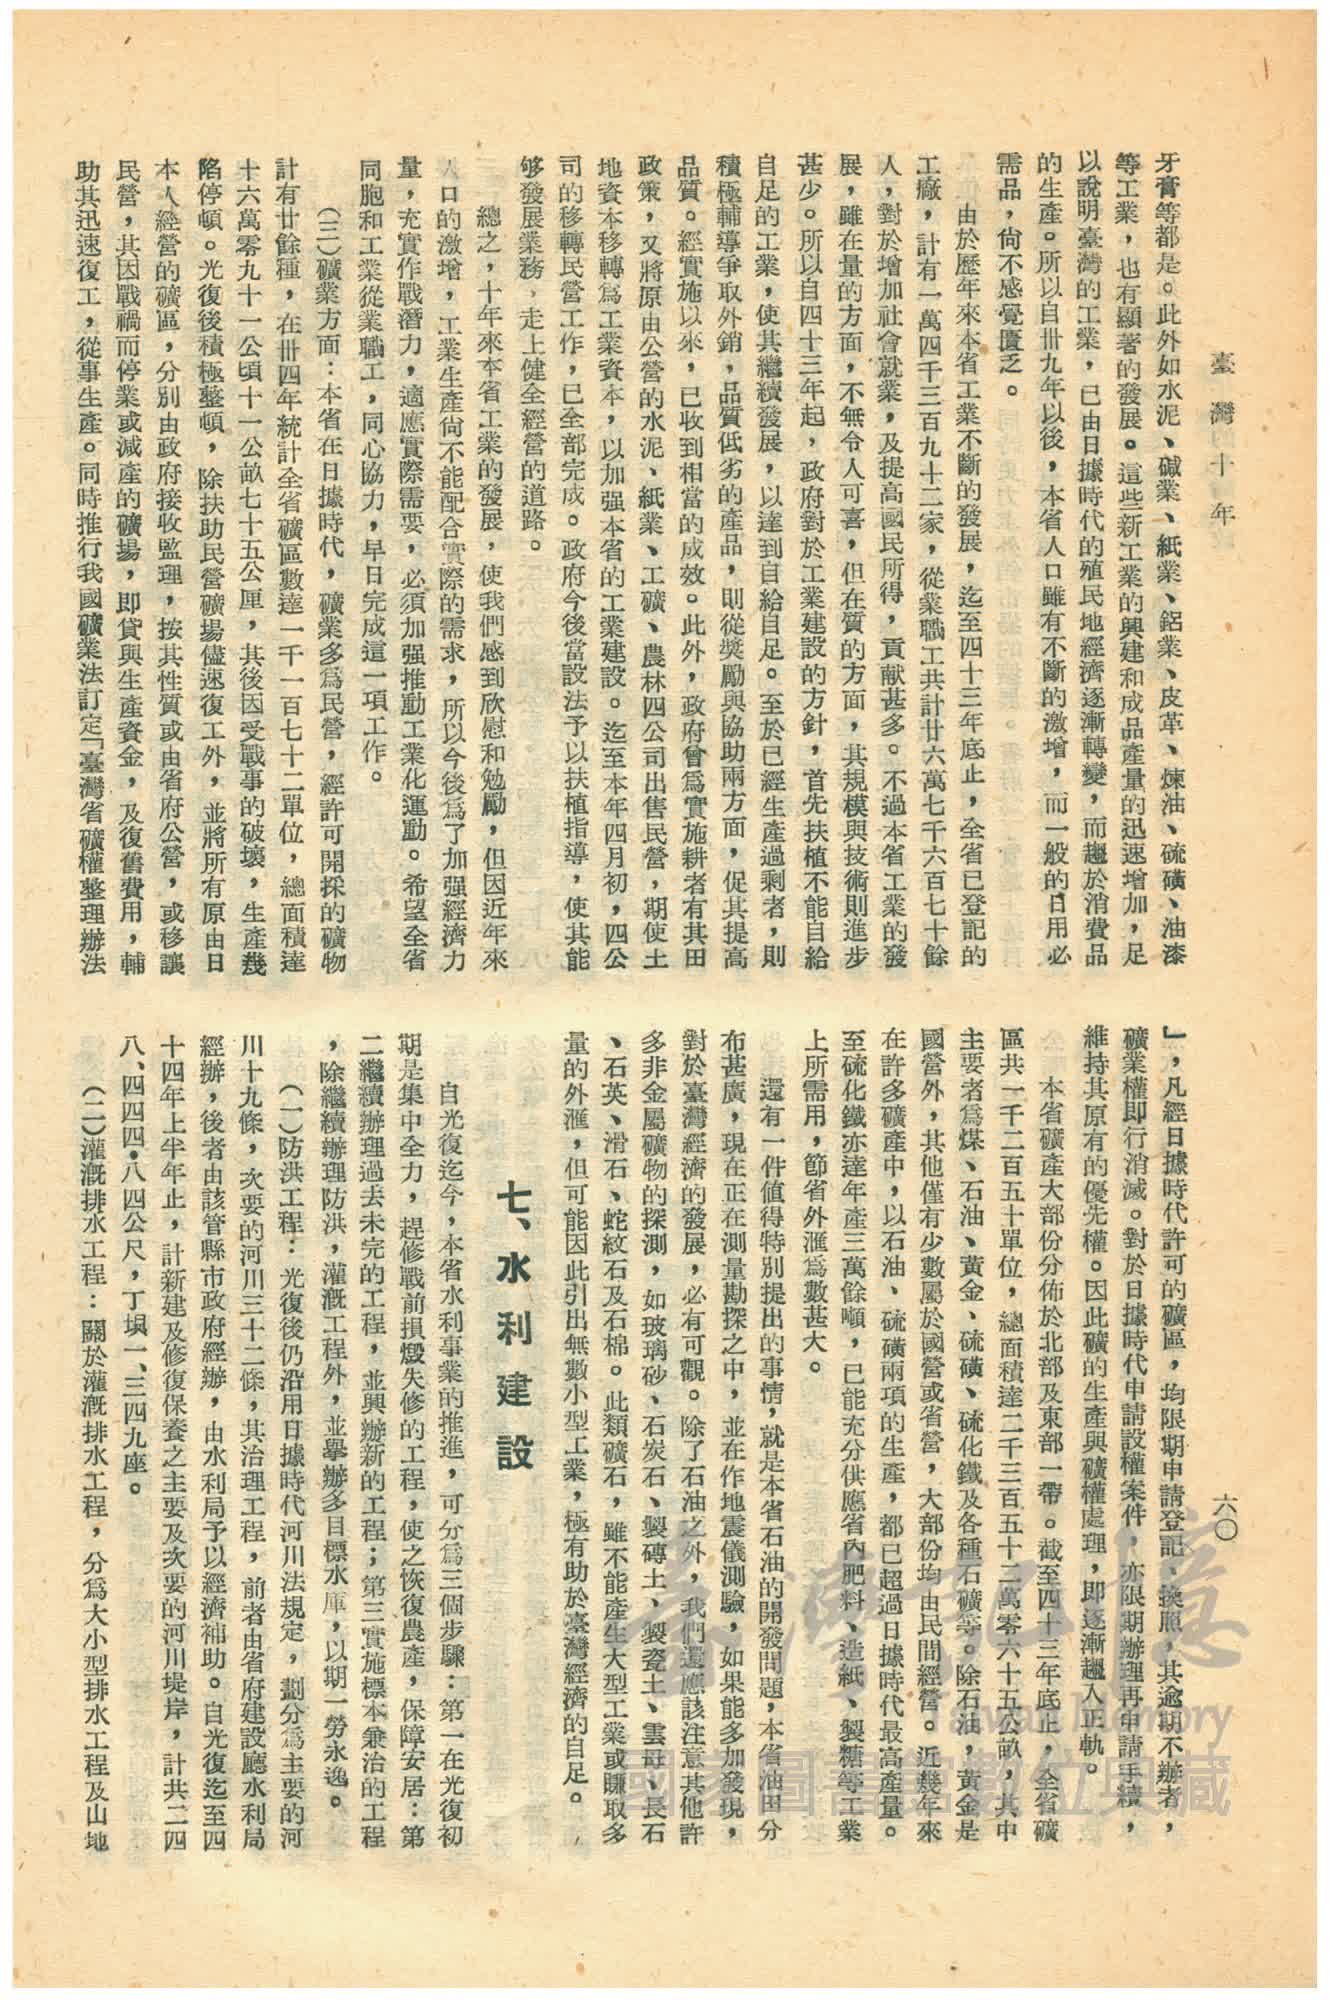 臺灣的十年
六〇
牙膏等都是。此外如水泥、碱業、紙業、鋁業、皮革、煉油、硫磺、油漆
等工業，也有顯著的發展。這些新工業的興建和成品產量的迅速增加，足
以說明臺灣的工業，已由日據時代的殖民地經濟逐漸轉變，而趨於消費品
的生產。所以自卅九年以後，本省人口雖有不斷的激增，而一般的日用必
需品，尙不感覺匱乏。
由於歷年來本省工業不斷的發展，迄至四十三年底止，全省已登記的
工廠，計有一萬四千三百九十二家，從業職工共計廿六萬七千六百七十餘
人，對於增加社會就業，及提高國民所得，貢献甚多。不過本省工業的發
展，雖在量的方面，不無令人可喜，但在質的方面，其規模與技術則進步
甚少。所以自四十三年起，政府對於工業建設的方針，首先扶植不能自給
自足的工業，使其繼續發展，以達到自給自足。至於已經生產過剩者，則
積極輔導爭取外銷，品質低劣的產品，則從獎勵與協助兩方面，促其提高
品質。經實施以來，已收到相當的成效。此外，政府曾爲實施耕者有其田
政策，又將原由公營的水泥、紙業、工礦、農林四公司出售民營，期使土
地資本移轉爲工業資本，以加强本省的工業建設。迄至本年四月初，四公
司的移轉民營工作，已全部完成。政府今後當設法予以扶植指導，使其能
够發展業務，走上健全經營的道路。
總之，十年來本省工業的發展，使我們感到欣慰和勉勵，但因近年來
人口的激增，工業生產尙不能配合實際的需求，所以今後爲了加强經濟力
量，充實作戰潛力，適應實際需要，必須加强推動工業化運動。希望全省
同胞和工業從業職工，同心協力，早日完成這一項工作。
（三）礦業方面：本省在日據時代，礦業多爲民營，經許可開採的礦物
計有廿餘種，在卅四年統計全省礦區數達一千一百七十二單位，總面積達
十六萬零九十一公頃十一公畝七十五公厘，其後因受戰事的破壞，生產幾
陷停頓。光復後積極整頓，除扶助民營礦場儘速復工外，並將所有原由日
本人經營的礦區，分別由政府接收監理，按其性質或由省府公營，或移讓
民營，其因戰禍而停業或減產的礦場，即貸與生產資金，及復舊費用，輔
助其迅速復工，從事生產。同時推行我國礦業法訂定「臺灣省礦權整理辦法
」，凡經日據時代許可的礦區，均限期申請登記、換照，其逾期不辦者，
礦業權即行消滅。對於日據時代申請設權案件，亦限期辦理再申請手續，
維持其原有的優先權。因此礦的生產與礦權處理，即逐漸趨入正軌。
本省礦產大部份分佈於北部及東部一帶。截至四十三年底止，全省礦
區共一千二百五十單位，總面積達二千三百五十二萬零六十五公畝，其中
主要者爲煤、石油、黃金、硫磺、硫化鐵及各種石礦等。除石油，黃金是
國營外，其他僅有少數屬於國營或省營，大部份均由民間經營。近幾年來
在許多礦產中，以石油、硫磺兩項的生產，都已超過日據時代最高產量。
至硫化鐵亦達年產三萬餘噸，已能充分供應省內肥料、造紙、製糖等工業
上所需用，節省外滙爲數甚大。
還有一件值得特別提出的事情，就是本省石油的開發問題，本省油田分
布甚廣，現在正在測量勘探之中，並在作地震儀測驗，如果能多加發現，
對於臺灣經濟的發展，必有可觀。除了石油之外，我們還應該注意其他許
多非金屬礦物的探測，如玻璃砂、石炭石、製磚土、製瓷土、雲母、長石
、石英、滑石、蛇紋石及石棉。此類礦石，雖不能產生大型工業或賺取多
量的外滙，但可能因此引出無數小型工業，極有助於臺灣經濟的自足。
七、水利建設
自光復迄今，本省水利事業的推進，可分爲三個步驟：第一在光復初
期是集中全力，趕修戰前損燬失修的工程，使之恢復農產，保障安居：第
二繼續辦理過去未完的工程，並興辦新的工程；第三實施標本兼治的工程
，除繼續辦理防洪，灌漑工程外，並擧辦多目標水庫，以期一勞永逸。
（一）防洪工程：光復後仍沿用日據時代河川法規定，劃分爲主要的河
川十九條，次要的河川三十二條，其治理工程，前者由省府建設廳水利局
經辦，後者由該管縣市政府經辦，由水利局予以經濟補助。自光復迄至四
十四年上半年止，計新建及修復保養之主要及次要的河川堤岸，計共二四
八、四四四．八四公尺，丁垻一、三四九座。
（二）灌漑排水工程：關於灌漑排水工程，分爲大小型排水工程及山地
臺灣記憶
Taiwan Memory
國家圖書館數位典藏